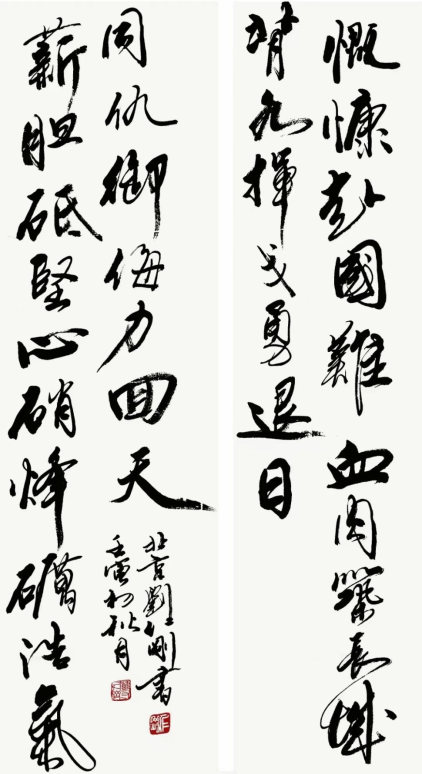 慨慷赴國難血肉築長城
背水揮戈勇退日
薪胆砥堅心硝烽礪浩氣
同仇御侮力回天
北京劉剛書
壬寅初秋月